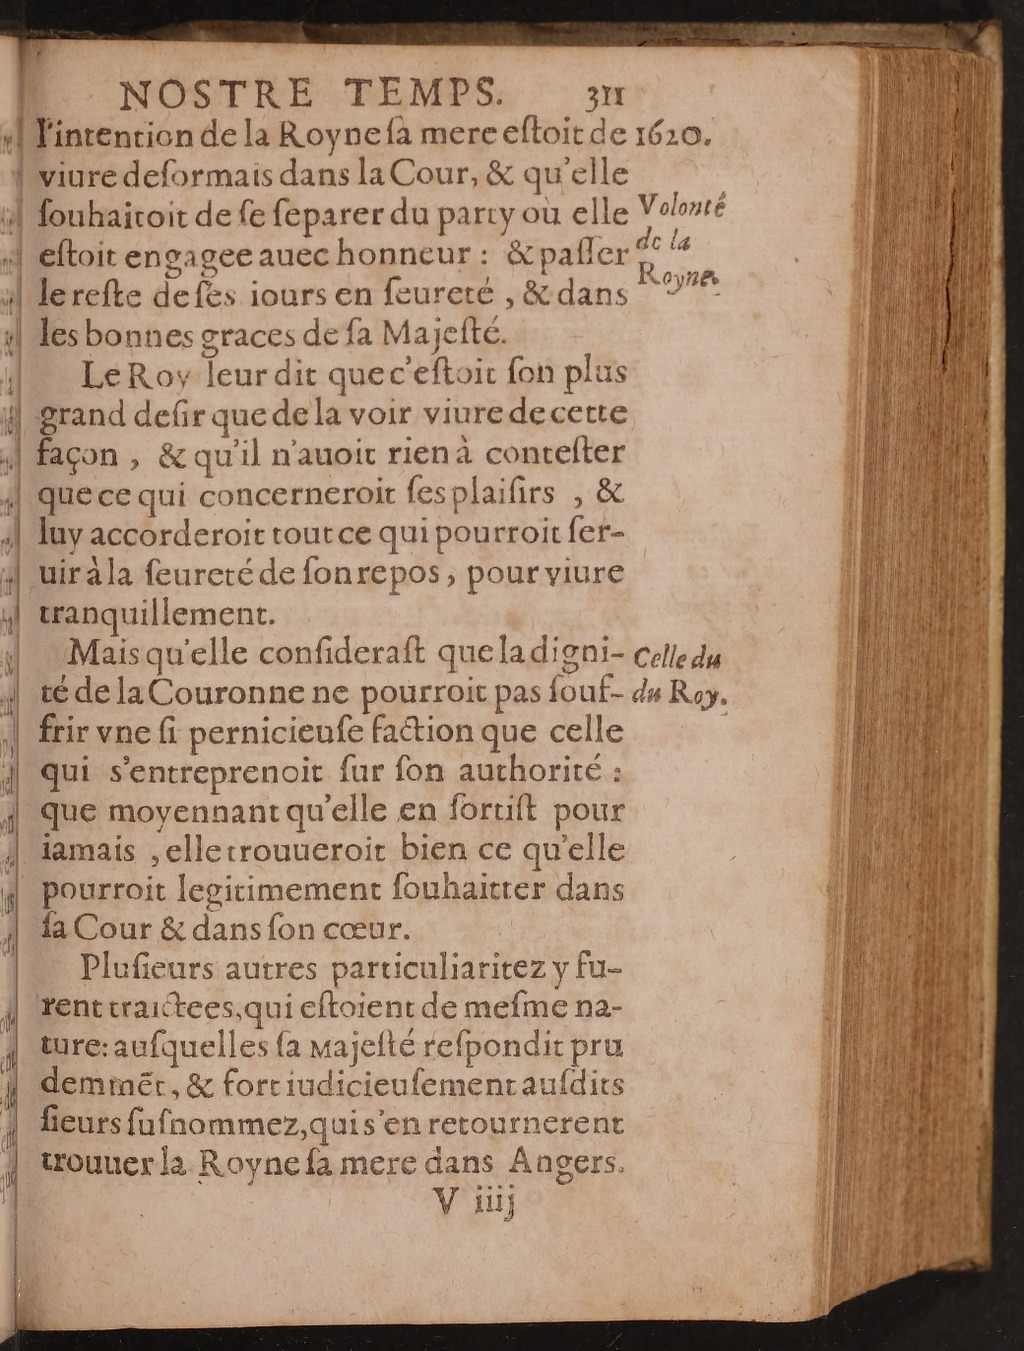 NOSTRE TEMPS. 311
l'intention de la Royne ſa mere eſtoit de 1620.
viure deſormais dans la Cour, & qu'elle
ſouhaitoit de ſe ſeparer du party où elle Volonté
eſtoit engagee auec honneur : & paſſer de la
le reſte de ſes iours en ſeureté , & dans Royne
les bonnes graces de ſa Majeſté.
Le Roy leur dit que c'eſtoit ſon plus
grand deſir que de la voir viure de cette
façon , & qu'il n'auoit rien à conteſter
que ce qui concerneroit ſes plaiſirs , &
luy accorderoit tout ce qui pourroit ſer-
uir à la ſeureté de ſon repos, pour viure
tranquillement.
Mais qu'elle conſideraſt que la digni- Celle du
té de la Couronne ne pourroit pas ſouf- du Roy.
frir vne ſi pernicieuſe faction que celle
qui s'entreprenoit ſur ſon authorité :
que moyennant qu'elle en ſortiſt pour
iamais , elle trouueroit bien ce qu'elle
pourroit legitimement ſouhaitter dans
ſa Cour & dans ſon cœur.
Pluſieurs autres particuliaritez y fu-
rent traictees, qui eſtoient de meſme na-
ture: auſquelles ſa Majeſté reſpondit pru
demmẽt, & fort iudicieuſement auſdits
ſieurs ſuſnommez, qui s'en retournerent
trouuer la Royne ſa mere dans Angers.
V iiij